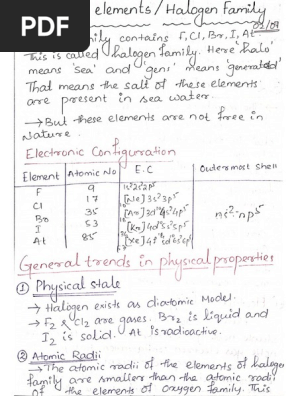 PDF
elements / Halogen Family
03/09
family contains F, Cl, Br, I, At
This is called halogen family. Here 'halo'
means 'sea' and 'gens' means 'generated'
That means the salt of these elements
are present in sea water.
→ But these elements are not free in
Nature.
Electronic Configuration
Element Atomic No E.C Outermost Shell
F 9 1s²2s²2p⁵
Cl 17 [Ne] 3s²3p⁵
Br 35 [Ar] 3d¹⁰4s²4p⁵ ns² np⁵
I 53 [Kr] 4d¹⁰5s²5p⁵
At 85 [Xe] 4f¹⁴5d¹⁰6s²6p⁵
General trends in physical properties
① Physical state
→ Halogen exists as diatomic Model.
→ F₂ & Cl₂ are gases. Br₂ is liquid and
I₂ is solid. At is radioactive.
② Atomic Radii
→ The atomic radii of the elements of halogen
family are smaller than the atomic radii
of the elements of oxygen family. This